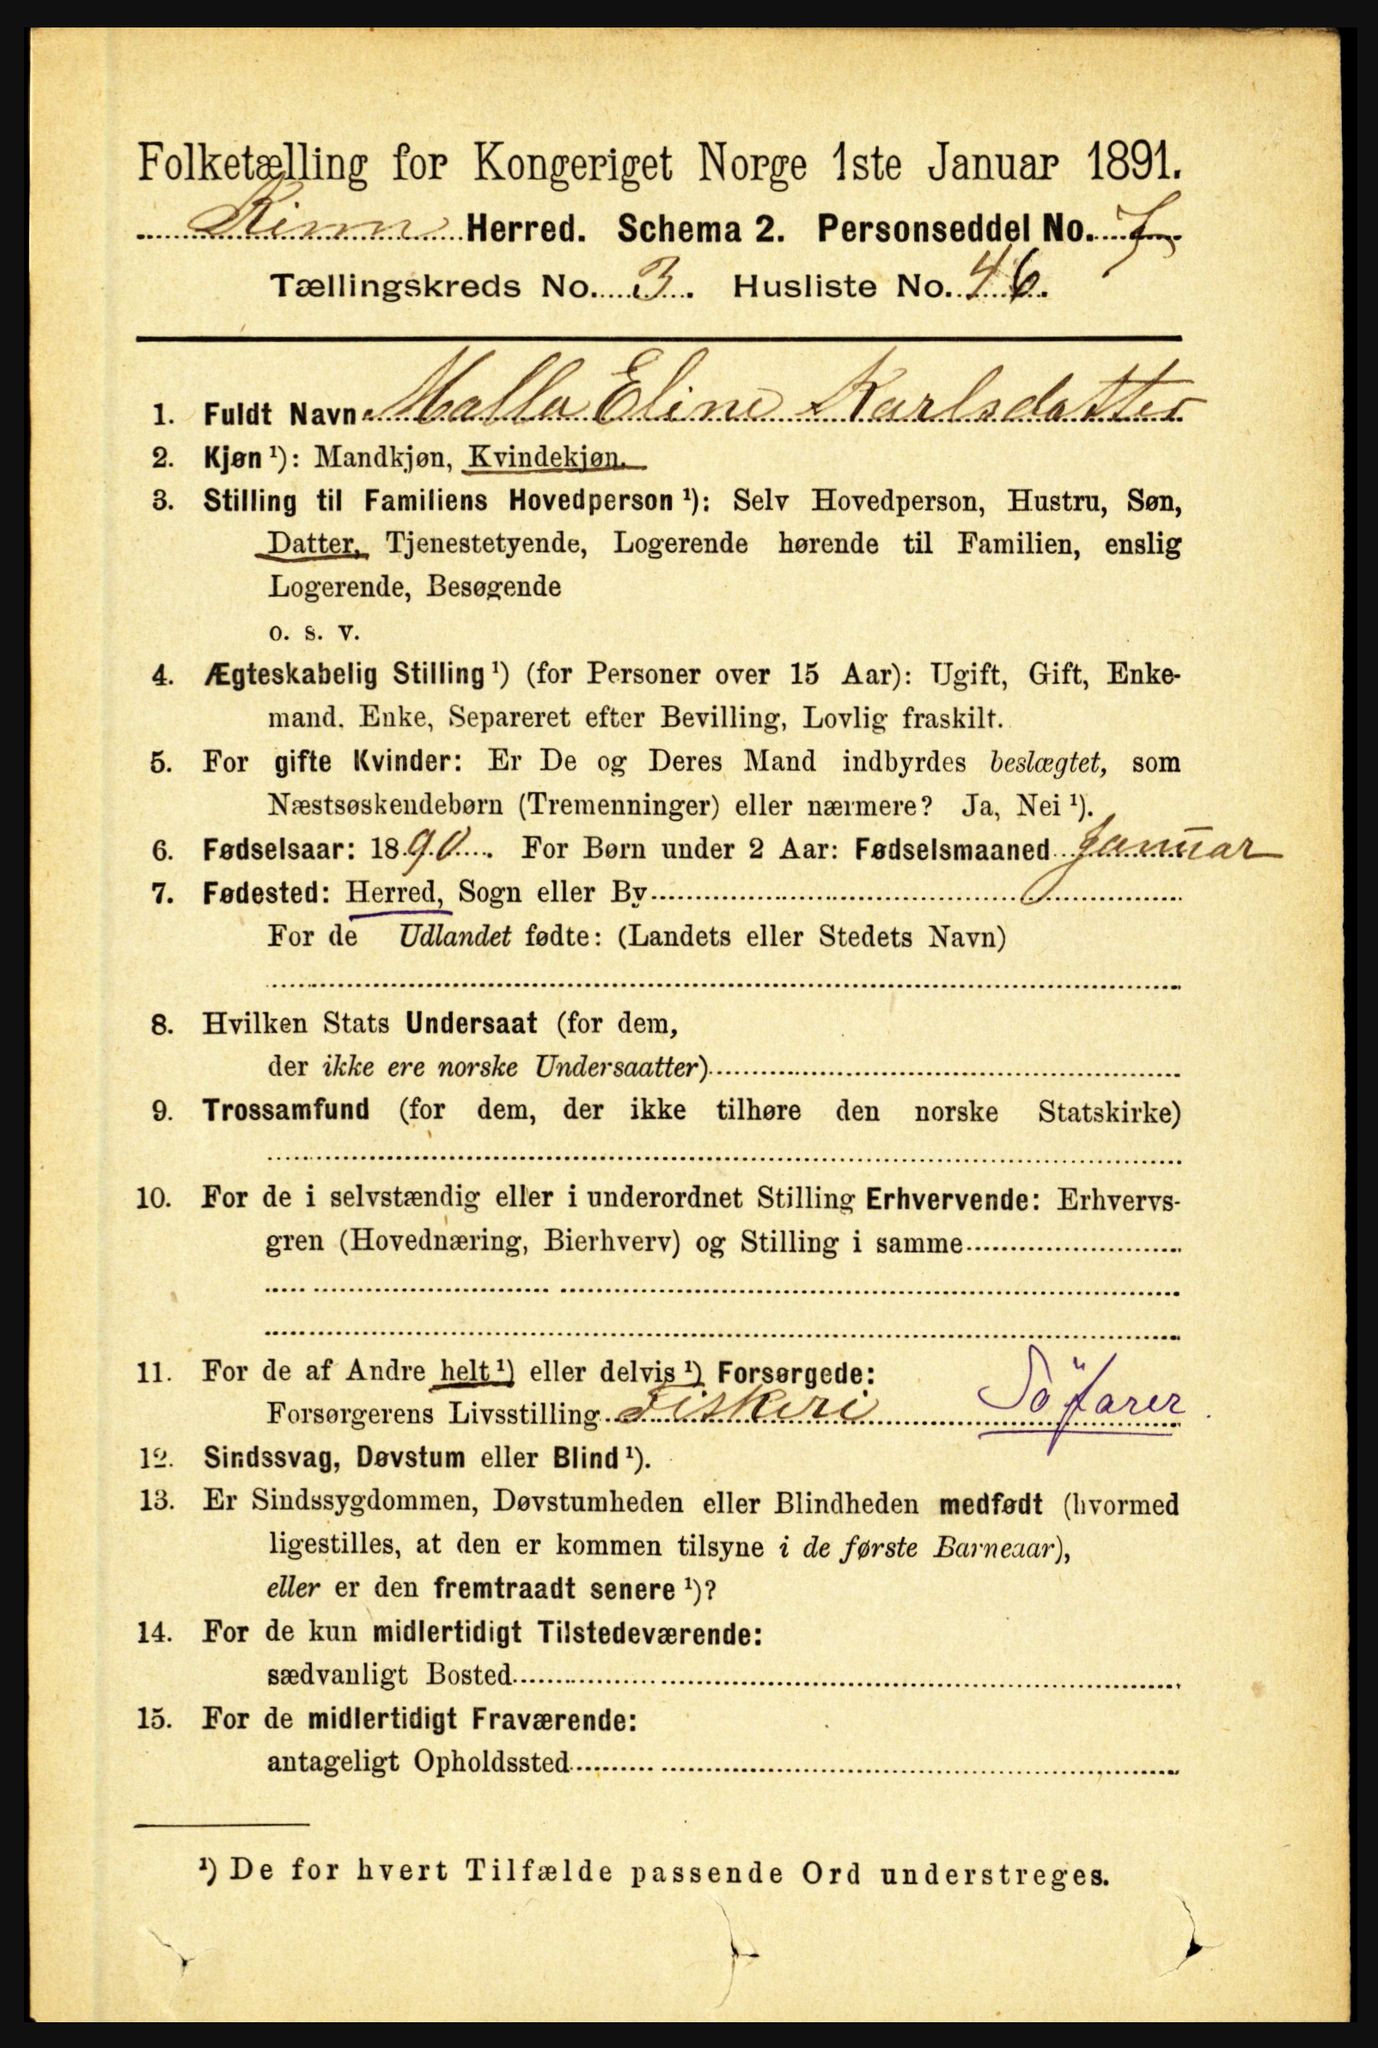 Folketælling for Kongeriget Norge 1ste Januar 1891.
Kinn Herred. Schema 2. Personseddel No. 7
Tællingskreds No. 3. Husliste No. 46.
1. Fuldt Navn Malla Eline Karlsdatter
2. Kjøn ¹): Mandkjøn, Kvindekjøn.
3. Stilling til Familiens Hovedperson ¹): Selv Hovedperson, Hustru, Søn,
Datter, Tjenestetyende, Logerende hørende til Familien, enslig
Logerende, Besøgende
o. s. v.
4. Ægteskabelig Stilling ¹) (for Personer over 15 Aar): Ugift, Gift, Enke-
mand, Enke, Separeret efter Bevilling, Lovlig fraskilt.
5. For gifte Kvinder: Er De og Deres Mand indbyrdes beslægtet, som
Næstsøskendebørn (Tremenninger) eller nærmere? Ja, Nei ¹).
6. Fødselsaar: 1890. For Børn under 2 Aar: Fødselsmaaned Januar
7. Fødested: Herred, Sogn eller By
For de Udlandet fødte: (Landets eller Stedets Navn)
8. Hvilken Stats Undersaat (for dem,
der ikke ere norske Undersaatter)
9. Trossamfund (for dem, der ikke tilhøre den norske Statskirke)
10. For de i selvstændig eller i underordnet Stilling Erhvervende: Erhvervs-
gren (Hovednæring, Bierhverv) og Stilling i samme
11. For de af Andre helt ¹) eller delvis ¹) Forsørgede:
Forsørgerens Livsstilling Fiskeri Söfarer
12. Sindssvag, Døvstum eller Blind ¹).
13. Er Sindssygdommen, Døvstumheden eller Blindheden medfødt (hvormed
ligestilles, at den er kommen tilsyne i de første Barneaar),
eller er den fremtraadt senere ¹)?
14. For de kun midlertidigt Tilstedeværende:
sædvanligt Bosted
15. For de midlertidigt Fraværende:
antageligt Opholdssted
¹) De for hvert Tilfælde passende Ord understreges.